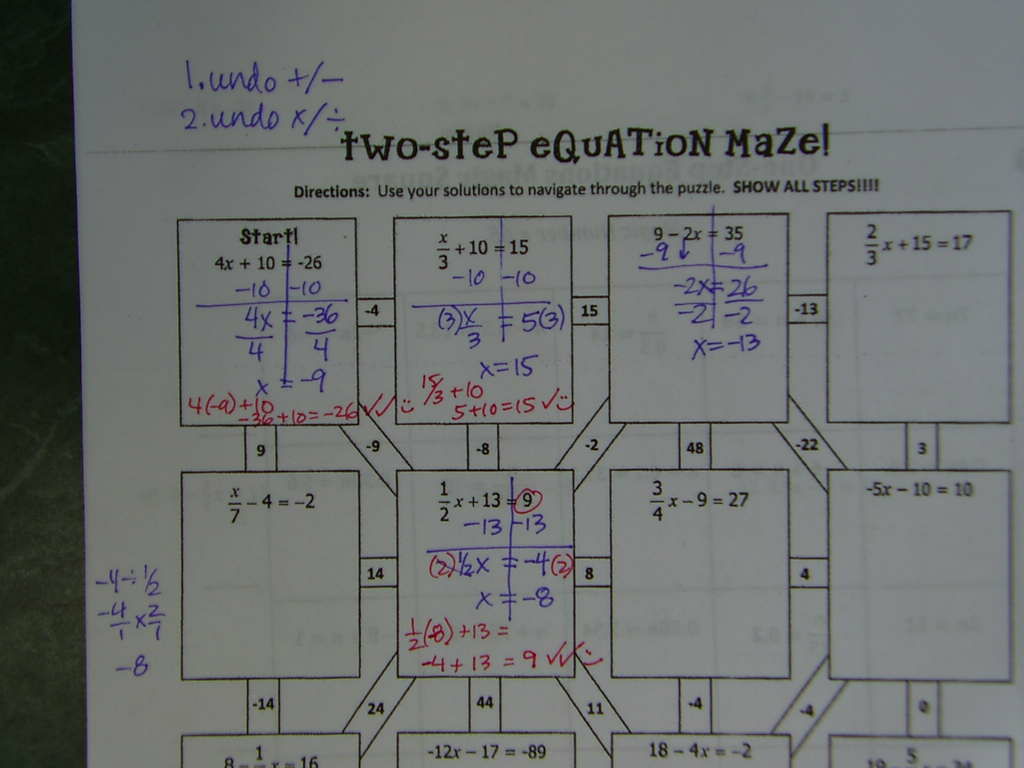 1. undo +/−
2. undo x/÷
Two-Step Equation Maze!
Directions: Use your solutions to navigate through the puzzle. SHOW ALL STEPS!!!!
Start!
4x + 10 = -26
-10 -10
4x = -36
4 4
x = -9
4(-9)+10
-36+10=-26 ✓✓
-4
x/3 + 10 = 15
-10 -10
(3) x/3 = 5(3)
x=15
15/3 +10
5+10=15 ✓
15
9 − 2x = 35
-9 -9
-2x=26
-2 -2
x=-13
-13
2/3 x + 15 = 17
9
-9
-8
-2
48
-22
3
x/7 − 4 = −2
14
1/2 x + 13 = 9
-13 -13
(2) 1/2 x = -4(2)
x = -8
1/2(-8) +13 =
-4+13 = 9 ✓✓
8
3/4 x − 9 = 27
4
-5x − 10 = 10
-4÷1/2
-4/1 x 2/1
-8
-14
24
44
11
-4
-4
0
8 − 1/ x = 16
-12x − 17 = -89
18 − 4x = −2